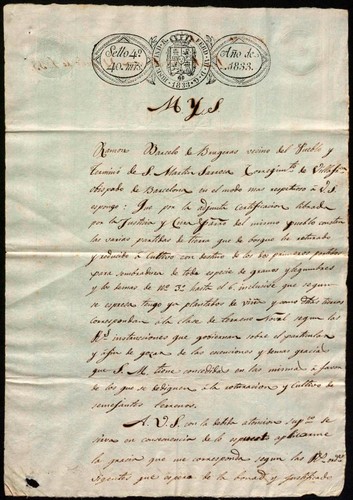 Sello 4º
40 mrs
HISPAN
1833
Año de
1833.
M Y S
Ramon Barcelo de Brugeras vecino del Pueblo y
termino de S. Martin Sarroca Corregimto de Villafca
obispado de Barcelona en el modo mas respetuoso à V.S.
espongo: Que por la adjunta Certificacion librada
por la Justicia y Cura del mismo pueblo constan
las varias partidas de tierra que de bosque he
reducido à cultivo con destino de las dos primeras partidas
para sembradura de toda especie de granos y legumbres
y las demas de nº 3º hasta el 6 inclusive que segun
se espresa tengo ya plantados de viña y como tierras
correspondan à la clase de terreno Noval segun las
instrucciones que goviernan sobre el particular
y á fin de gozar de las esenciones y demas gracias
que S. M. tiene concedidas en las mismas à favor
de los que se dediquen à la roturacion y cultivo de
semejantes terrenos.
A. V. S. con la debida atencion suppco se
sirva en consecuencia de lo espuesto aplicarme
la gracia que me corresponda segun las
vigentes que espera de la bondad y justificado